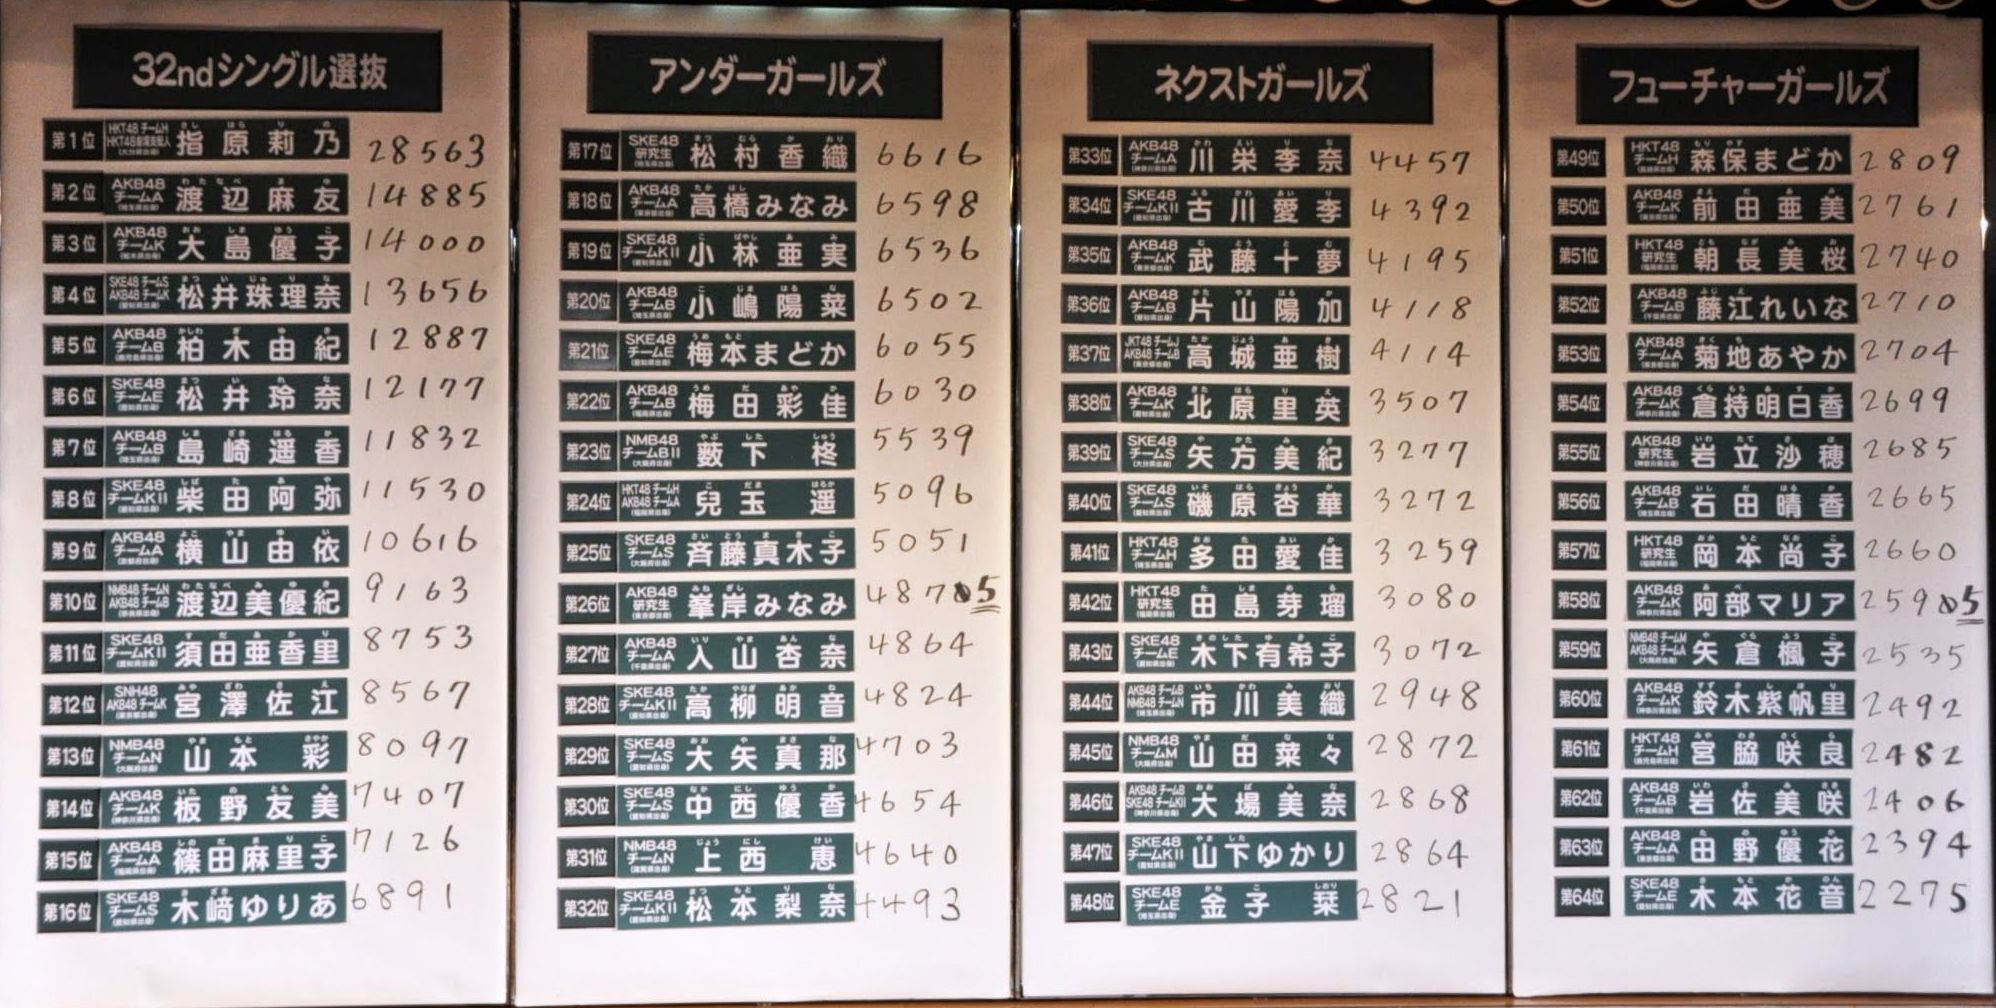 32ndシングル選抜
第1位 HKT48 チームH 指原莉乃 28563
第2位 AKB48 チームA 渡辺麻友 14885
第3位 AKB48 チームK 大島優子 14000
第4位 SKE48 チームS AKB48 チームK 松井珠理奈 13656
第5位 AKB48 チームB 柏木由紀 12887
第6位 SKE48 チームE 松井玲奈 12177
第7位 AKB48 チームB 島崎遥香 11832
第8位 SKE48 チームKII 柴田阿弥 11530
第9位 AKB48 チームA 横山由依 10616
第10位 NMB48 チームN AKB48 チームB 渡辺美優紀 9163
第11位 SKE48 チームKII 須田亜香里 8753
第12位 SNH48 AKB48 チームK 宮澤佐江 8567
第13位 NMB48 チームN 山本彩 8097
第14位 AKB48 チームK 板野友美 7407
第15位 AKB48 チームA 篠田麻里子 7126
第16位 SKE48 チームS 木﨑ゆりあ 6891
アンダーガールズ
第17位 SKE48 研究生 松村香織 6616
第18位 AKB48 チームA 高橋みなみ 6598
第19位 SKE48 チームKII 小林亜実 6536
第20位 AKB48 チームB 小嶋陽菜 6502
第21位 SKE48 チームE 梅本まどか 6055
第22位 AKB48 チームB 梅田彩佳 6030
第23位 NMB48 チームBII 薮下柊 5539
第24位 HKT48 チームH AKB48 チームA 兒玉遥 5096
第25位 SKE48 チームS 斉藤真木子 5051
第26位 AKB48 研究生 峯岸みなみ 4875
第27位 AKB48 チームA 入山杏奈 4864
第28位 SKE48 チームKII 高柳明音 4824
第29位 SKE48 チームS 大矢真那 4703
第30位 SKE48 チームS 中西優香 4654
第31位 NMB48 チームN 上西恵 4640
第32位 SKE48 チームKII 松本梨奈 4493
ネクストガールズ
第33位 AKB48 チームA 川栄李奈 4457
第34位 SKE48 チームKII 古川愛李 4392
第35位 AKB48 チームK 武藤十夢 4195
第36位 AKB48 チームB 片山陽加 4118
第37位 JKT48 チームJ AKB48 チームB 高城亜樹 4114
第38位 AKB48 チームK 北原里英 3507
第39位 SKE48 チームS 矢方美紀 3277
第40位 SKE48 チームS 磯原杏華 3272
第41位 HKT48 チームH 多田愛佳 3259
第42位 HKT48 研究生 田島芽瑠 3080
第43位 SKE48 チームE 木下有希子 3072
第44位 AKB48 チームB NMB48 チームN 市川美織 2948
第45位 NMB48 チームM 山田菜々 2872
第46位 AKB48 チームB SKE48 チームKII 大場美奈 2868
第47位 SKE48 チームKII 山下ゆかり 2864
第48位 SKE48 チームE 金子栞 2821
フューチャーガールズ
第49位 HKT48 チームH 森保まどか 2809
第50位 AKB48 チームK 前田亜美 2761
第51位 HKT48 研究生 朝長美桜 2740
第52位 AKB48 チームB 藤江れいな 2710
第53位 AKB48 チームA 菊地あやか 2704
第54位 AKB48 チームK 倉持明日香 2699
第55位 AKB48 研究生 岩立沙穂 2685
第56位 AKB48 チームB 石田晴香 2665
第57位 HKT48 研究生 岡本尚子 2660
第58位 AKB48 チームK 阿部マリア 2595
第59位 NMB48 チームM AKB48 チームA 矢倉楓子 2535
第60位 AKB48 チームK 鈴木紫帆里 2492
第61位 HKT48 チームH 宮脇咲良 2482
第62位 AKB48 チームB 岩佐美咲 2406
第63位 AKB48 チームA 田野優花 2394
第64位 SKE48 チームE 木本花音 2275